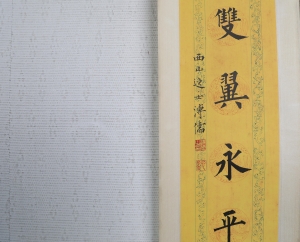 雙翼永平
西山逸士溥儒